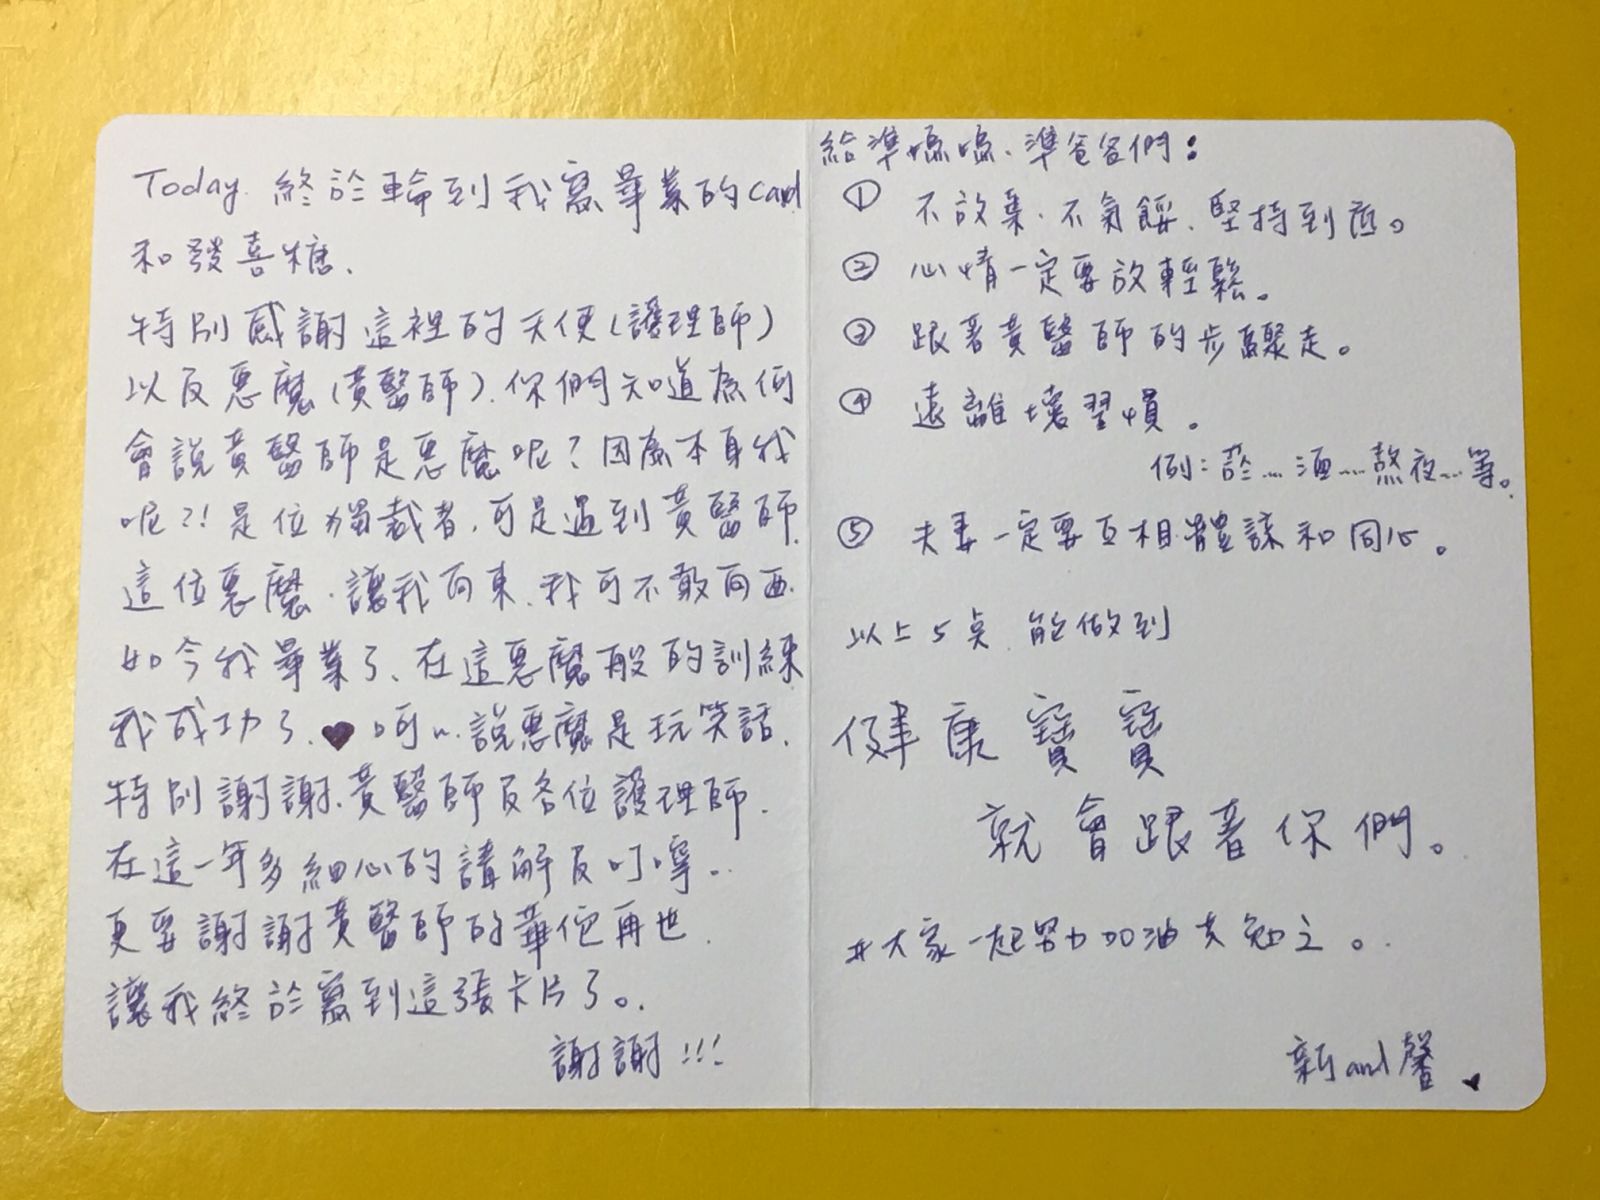 Today. 終於輪到我寫畢業的card
和發喜糖.
特別感謝這裡的天使(護理師)
以及惡魔(黃醫師).你們知道為何
會說黃醫師是惡魔呢?因為本身我
呢?!是位獨裁者,可是遇到黃醫師.
這位惡魔.讓我向東.我可不敢向西.
如今我畢業了、在這惡魔般的訓練
我成功了.♥呵~.說惡魔是玩笑話.
特別謝謝.黃醫師及各位護理師.
在這一年多細心的講解及叮嚀..
更要謝謝黃醫師的華佗再世.
讓我終於寫到這張卡片了。.
謝謝!!!
給準媽媽、準爸爸們:
① 不放棄.不氣餒.堅持到底。
② 心情一定要放輕鬆。
③ 跟著黃醫師的步驟走。
④ 遠離壞習慣。
例:菸....酒....熬夜...等。
⑤ 夫妻一定要互相體諒和同心。
以上5点 能做到
健康寶寶
就會跟著你們。
#大家一起努力加油共勉之。.
新and馨 ♥